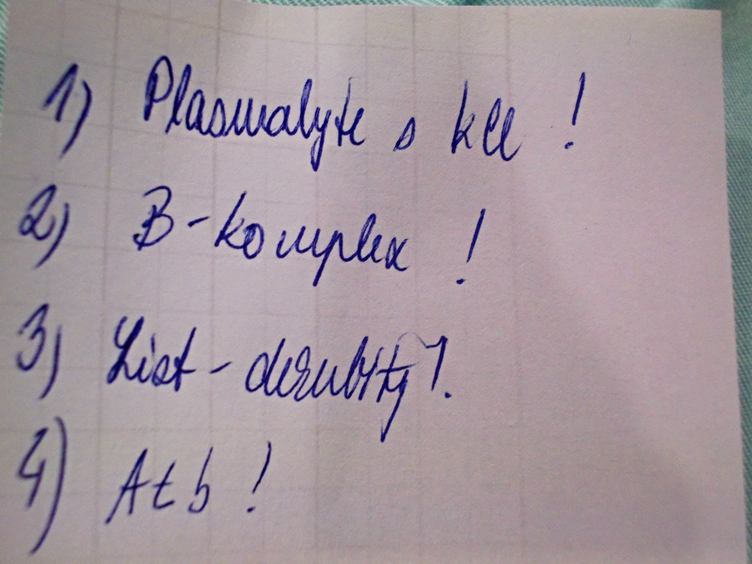 1) Plasmalyte s KCl !
2) B-komplex !
3) List - dekubity !
4) Atb !